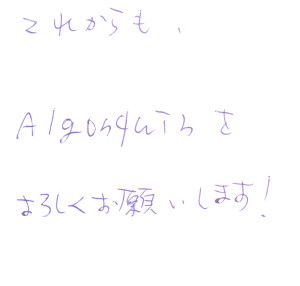 これからも、
Algonquinを
よろしくお願いします!